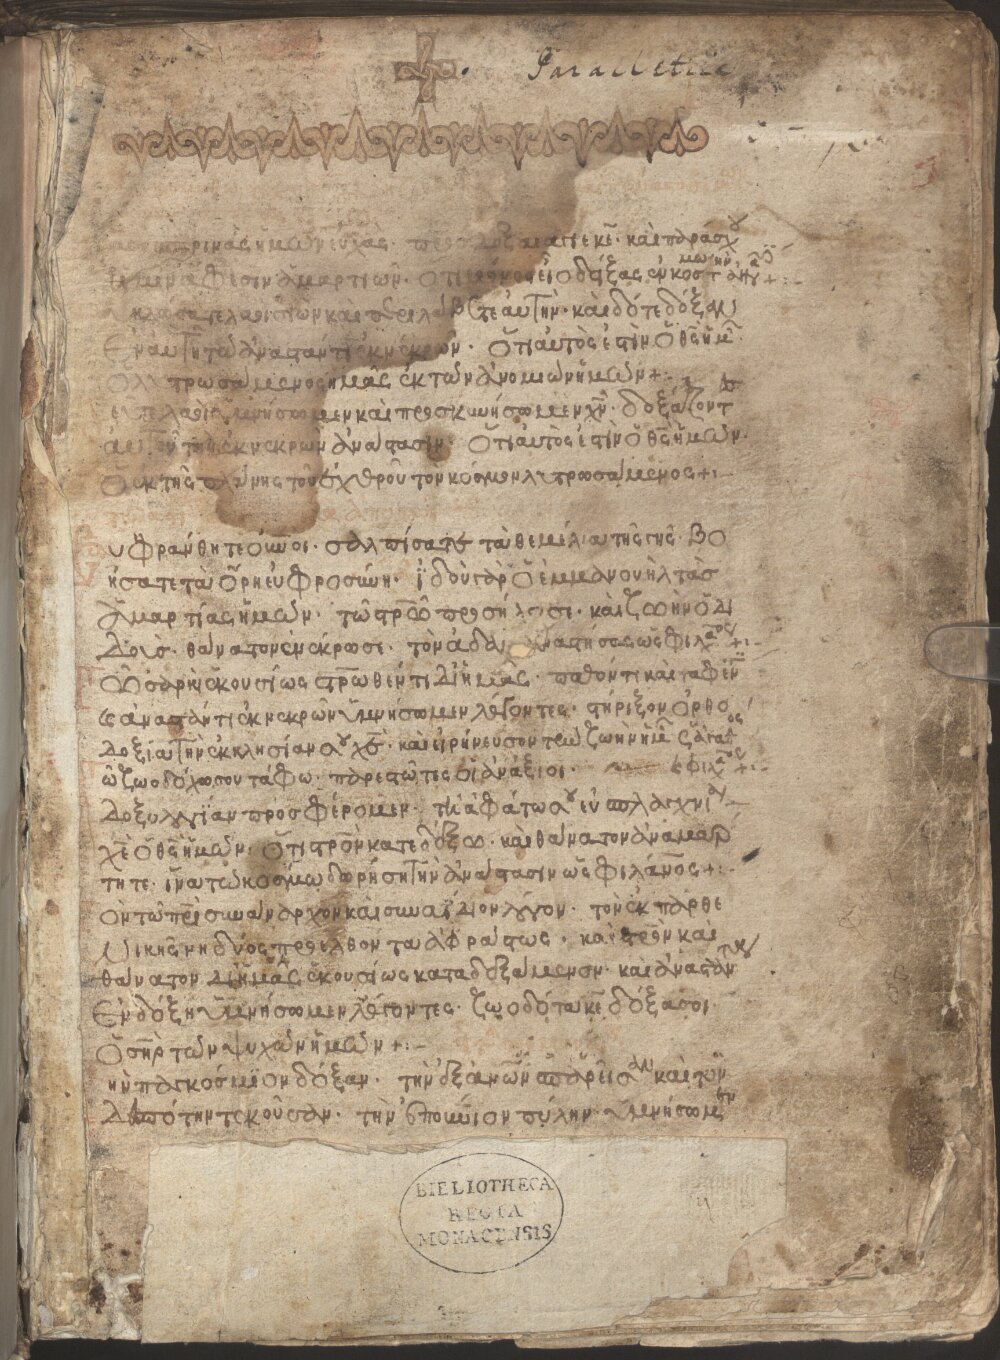 Paralletice
ἑσπερινὰς ἡμῶν εὐχὰς· πρόσδεξαι ἅγιε κε· καὶ παράσχου
ἡμῖν ἄφεσιν ἁμαρτιῶν· ὅτι μόνος εἶ ὁ δείξας ἐν κόσμω τὴν ἀνά +:-
κλώσατε λαοὶ σιὼν καὶ περιλάβετε αὐτὴν· καὶ δότε δόξαν
ἐν αὐτῆ τῶ ἀναστάντι ἐκ νεκρῶν· ὅτι αὐτός ἐστιν ὁ θς ἡμ
ὁ λυτρωσάμενος ἡμᾶς ἐκ τῶν ἀνομιῶν ἡμῶν +:-
εῦτε λαοὶ ὑμνήσωμεν καὶ προσκυνήσωμεν χν· δοξάζοντ
αὐτοῦ τὴν ἐκ νεκρῶν ἀνάστασιν· ὅτι αὐτός ἐστιν ὁ θς ἡμῶν·
ὁ ἐκ τῆς πλάνης τοῦ ἐχθροῦ τὸν κόσμον λυτρωσάμενος +:-
υφράνθητε οὐνοι· σαλπίσατε τὰ θεμέλια τῆς γῆς· βο
ήσατε τὰ ὄρη εὐφροσύνην· ἰδοὺ γὰρ ὁ ἐμμανουὴλ τὰς
ἁμαρτίας ἡμῶν· τῶ στρῶ προσήλωσε· καὶ ζωὴν ὁ δι
δοὺς· θάνατον ἐνέκρωσε· τὸν ἀδὰμ ἀναστήσας ὡς φιλάνος +:-
ὸν σαρκὶ ἑκουσίως στρωθέντα δι ἡμᾶς· παθόντα καὶ ταφέν
κ ἀναστάντα ἐκ νεκρῶν ὑμνήσωμεν λέγοντες· στήριξον ὀρθο
δοξία τὴν ἐκκλησίαν σου χε· καὶ εἰρήνευσον τὴν ζωὴν ἡμ ὡς ἀγαθος
ῶ ζωοδόχω σου τάφω· παρεστῶτες οἱ ἀνάξιοι· κ φιλανος +:-
δοξολογίαν προσφέρομεν· τῆ ἀφάτω σου εὐσπλαγχνία
χε ὁ θς ἡμῶν· ὅτι στρον κατεδέξω· καὶ θάνατον ἀναμάρ
τητε· ἵνα τῶ κόσμω δωρήση τὴν ἀνάστασιν ὡς φιλάνος +:-
ὸν τῶ πρι συνάναρχον καὶ συναΐδιον λόγον· τὸν ἐκ παρθε
νικῆς νηδύος προελθόντα ἀφράστως· καὶ στρον καὶ
θάνατον δι ἡμᾶς ἑκουσίως καταδεξάμενον· καὶ ἀναστάντα
ἐν δόξη ὑμνήσωμεν λέγοντες· ζωοδότα κε δόξα σοι
ὁ σηρ τῶν ψυχῶν ἡμῶν +:-
ὴν παγκόσμιον δόξαν· τὴν ἐξ ἀνων σπαρεῖσαν καὶ τὸν
δεσπότην τεκοῦσαν· τὴν ἐπουνιον πύλην· ὑμνήσωμεν
BIBLIOTHECA
REGIA
MONACENSIS